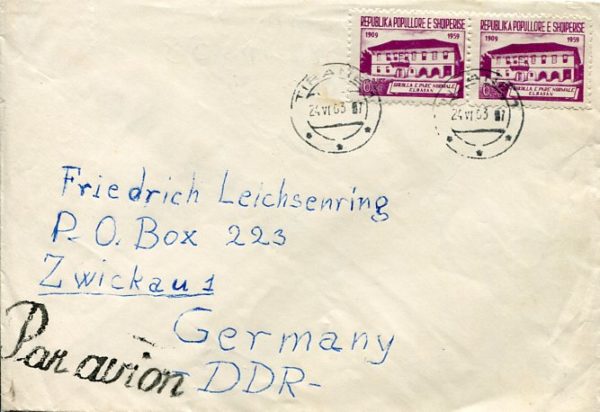 REPUBLIKA POPULLORE E SHQIPERISE
1909 1959
SHKOLLA E PARE NORMALE
ELBASAN
REPUBLIKA POPULLORE E SHQIPERISE
1909 1959
SHKOLLA E PARE NORMALE
ELBASAN
24 VI 63
24 VI 63
Friedrich Leichsenring
P.O. Box 223
Zwickau 1
Germany
-DDR-
Par avion